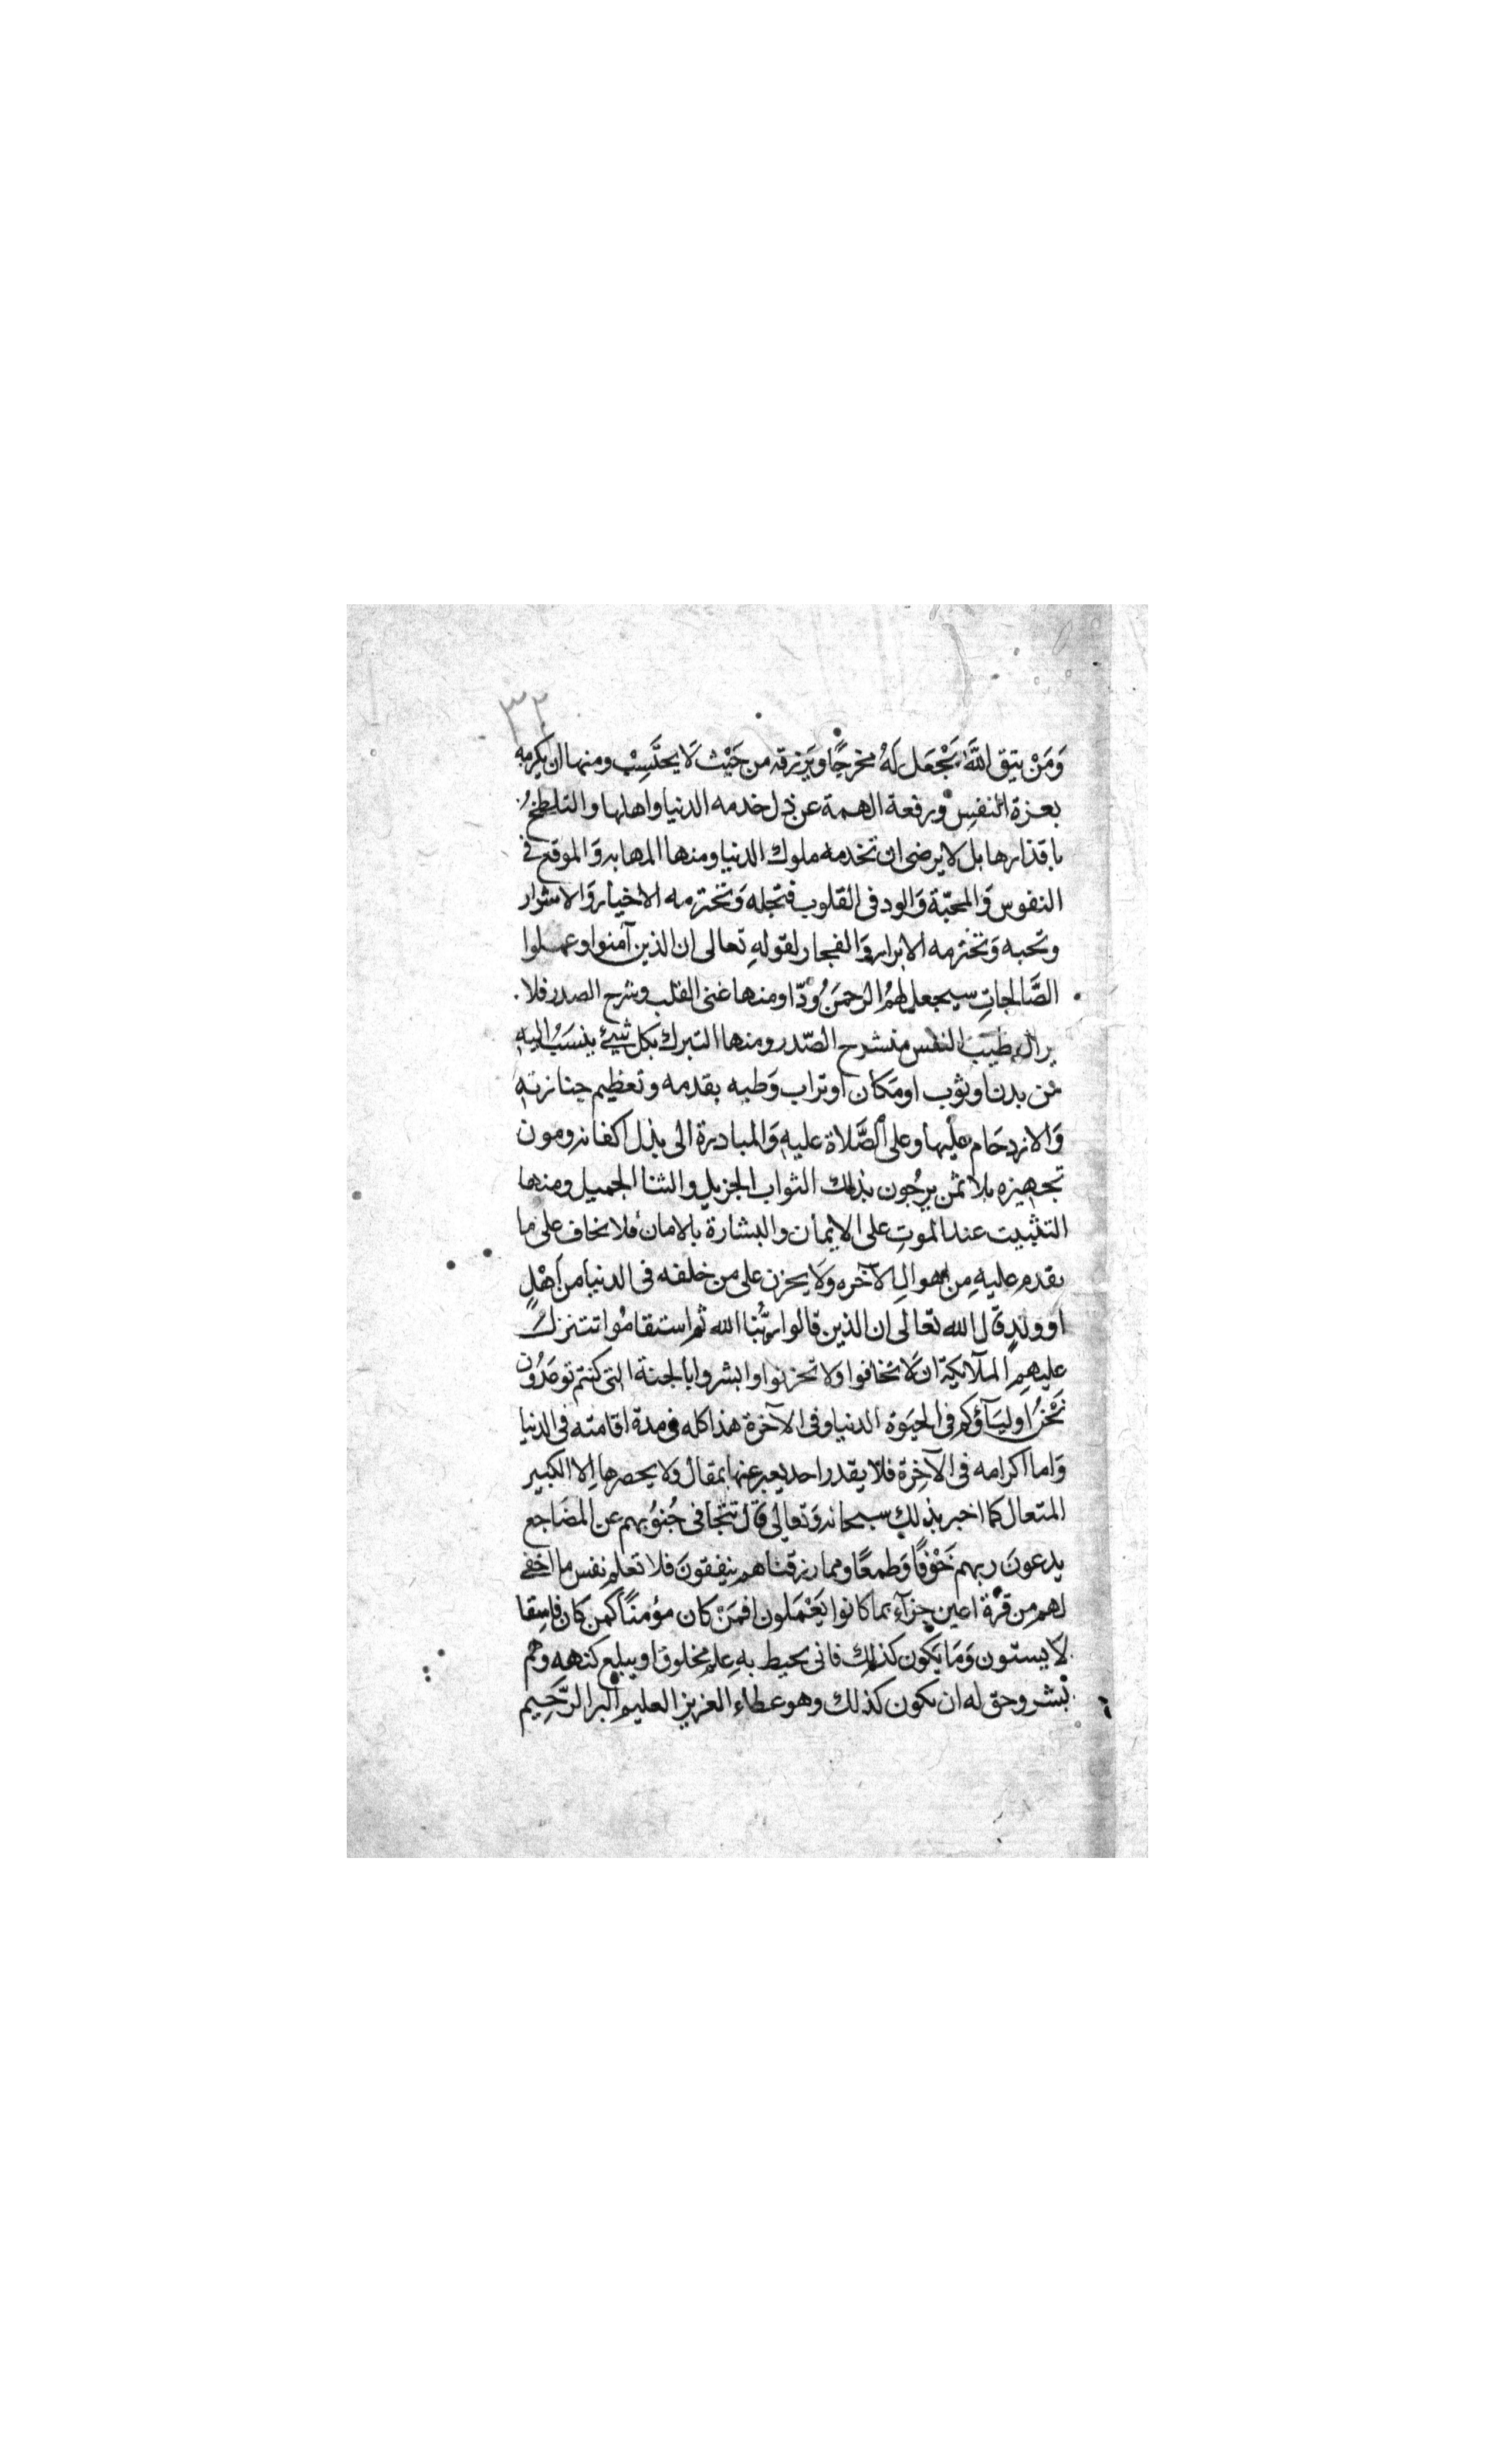 ٣٢
وَمَنْ يتيق اللَّهَ يَجْعَل لَهُ مخرجًا ويَرزقه من حَيْث لَا يحتَسِبْ ومنها ان يكرمه
بعزة النفسِ ورفعة الهمة عن ذل خدمه الدنيا واهلها والتلطخُ
باقذارها بل لا يرضى ان تخدمه ملوك الدنيا ومنها المهابه وَالموقع في
النفوس وَالمحبّة وَالود فى القلوب فتجله وَتحترمه الاخيار وَالاشرار
وتحبه وَتحترمه الابرار وَالفجار لقولهِ تعالى ان الذين آمنوا وعملوا
الصَّالحاتِ سيجعل لهمُ الرحمَنُ وُدّا ومنها غنى القلب وشرح الصدر فلا
يزال طيبَ النفس منشرح الصّدر ومنها التبرك بكل شيئ ينسَبُ اليهِ
من بدن او ثوب او مَكان او تراب وَطبه بقدمه وتعظيم جنازتهِ
وَالازدحَام عليها وعلى الصَّلاة عليهِ وَالمبادرة الى بذل اكفانه ومون
تجهيزه بلا ثمن يرجُون بذلك الثواب الجزيل والثنا الجميل ومنها
التثبيت عند الموتِ على الايمان والبشارة بالامان فلا يخاف على ما
يقدم عليهِ مِن اهوالِ الآخره وَلَا يحزن على من خلفه فى الدنيا من اَهْلٍ
او ولدٍ قال الله تعالى ان الذين قالوا ربُّنا الله ثم استقامُوا تتنزلُ
عليهمِ الملآيكة ان لَا تخافوا ولا تحزنوا وابشروا بالجنة التى كنتم توعَدُون
نَحْنُ اوليَآؤكم فى الحيَوة الدنيا وفى الآخرة هذا كله فى مدة اقامته فى الدنيا
وَاما اكرامه فى الآخِرة فلا يقدر احد يعبر عنها بمقال ولا يحصرها اِلا الكبير
المتعال كما اخبر بذلك سبحانه وَتعالى قال تتجافى جُنوُبهم عن المضَاجع
يدعونَ ربهم خَوْفًا وَطمعًا ومما رزقناهم ينفقونَ فلا تعلم نفس ما اخفى
لهم من قرّة اعين جزآءِ بما كانوا يَعْمَلون افمَنْ كان مؤمنًا كمن كان فاسِقا
لَا يستون وَمَا يَكون كذلك فانى يحيط بهِ علم مخلوق او يبلغ كنهه وهم
بشر وحق له ان يكون كذلك وهو عطاء العزيز العليم البر الرّحَيم